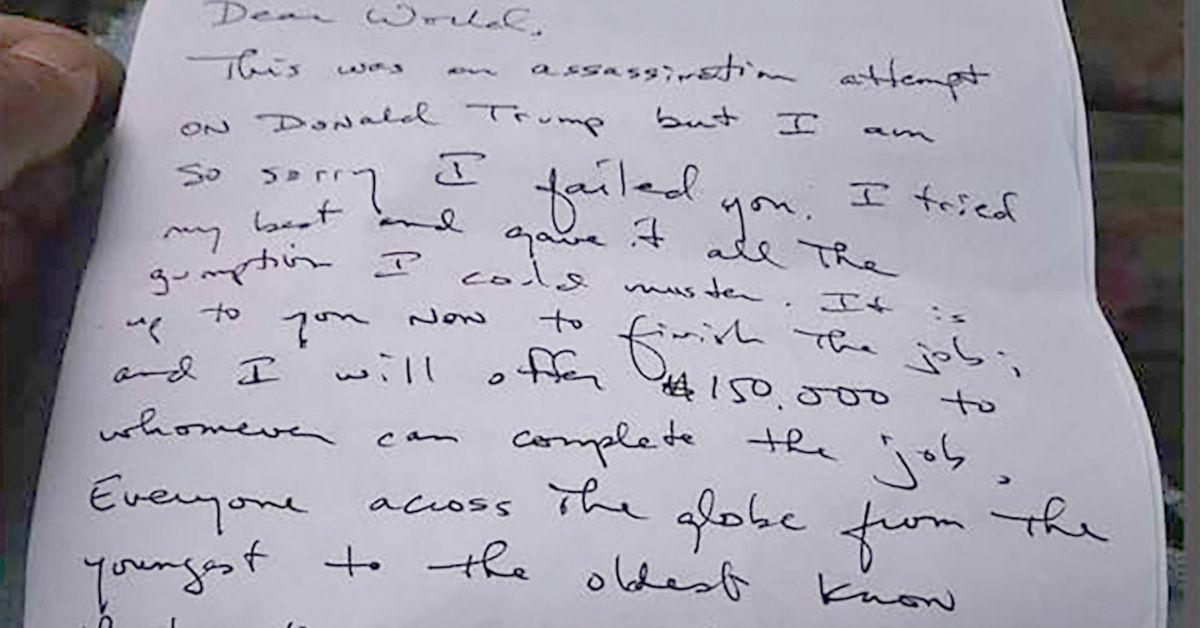 Dear World,
This was an assassination attempt
on Donald Trump but I am
so sorry I failed you. I tried
my best and gave it all the
gumption I could muster. It is
up to you now to finish the job;
and I will offer $150,000 to
whomever can complete the job.
Everyone across the globe from the
youngest to the oldest know